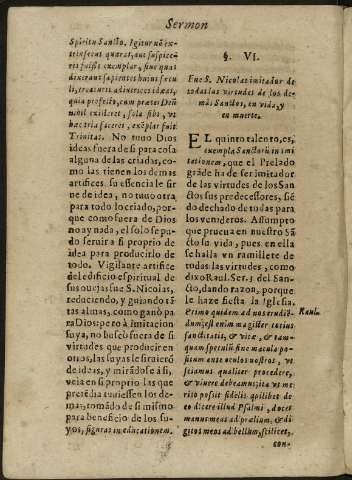 Sermon
Spiritu Sancto. Igitur nõ ex-
trinsecus quærat, aut suspice-
ret
sapientes huius sæcu
li, creaturas ad
quia profecto, cum præter Deũ
nihil extileret, sola sibi, vt
hæc tria faceret, exẽplar fuit
Trinitas. No tuuo Dios
ideas fuera de si para cosa
alguna de las criadas, co-
mo las tienen los demas
artifices. su essencia le sir
ue de idea, no tuuo otra
para todo lo criado, por-
que como fuera de Dios
no ay nada, el solo se pu-
do seruir a si proprio de
idea para producirlo de
todo. Vigilante artifice
del edificio espiritual de
sus ouejas fue S. Nicolas,
reduciendo, y guiando tã
tas almas, como ganò pa
ra Dios: pero à imitacion
suya, no buscò fuera de si
virtudes que producir en
otros, las suyas le siruierõ
de ideas, y mirãdose à si,
veia en si proprio las que
pretẽdia tuuiessen los de-
mas, tomãdo de si mismo
para beneficio de los su-
yos, figuras in educationem.
§. VI.
Fue S. Nicolas imitador de
todas las virtudes de los de-
màs Sanctos, en vida, y
en muerte.
EL quinto talento, es,
exempla Sanctorũ in imi
tationem, que el Prelado
grãde ha de ser imitador
de las virtudes de los San
ctos sus predecessores, siẽ
do dechado de todas para
los venideros. Assumpto
que prueua en nuestro Sã
cto su vida, pues en ella
se halla vn ramillete de
todas las virtudes, como
dixo Raul. Ser. 1 del San-
cto, dando razon, porque
le haze fiesta la Iglesia.
Primo quidem ad nos erudiẽ- Raul.
dum, est enim magister totius
sanctitatis, & vitæ, & tam-
quam speculũ sine macula po-
situm ante oculos nostros, vt
sciamus qualiter procedere,
& viuere debeamus, ita vt me
rito possit fidelis quilibet de
eo dicere illud Psalmi, docet
manus meas ad prælium, & di
gitos meos ad bellum, scilicet,
con-